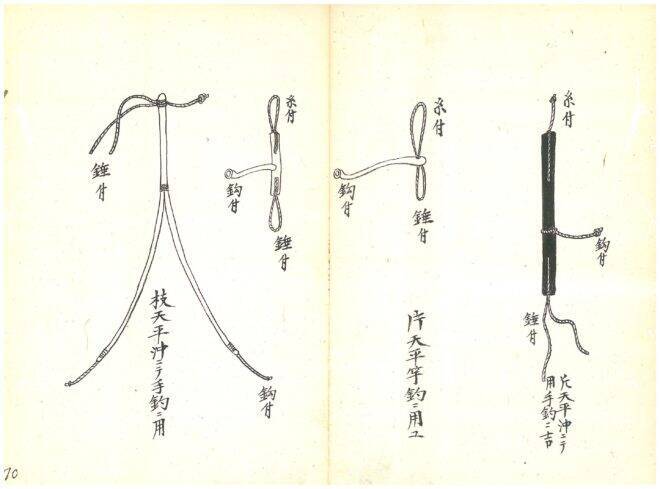 糸付
鈎付
錘付
片天平沖ニテ
用手釣ニ吉
糸付
鈎付
錘付
片天平竿釣ニ用ユ
糸付
鈎付
錘付
錘付
鈎付
枝天平沖ニテ手釣ニ用
70